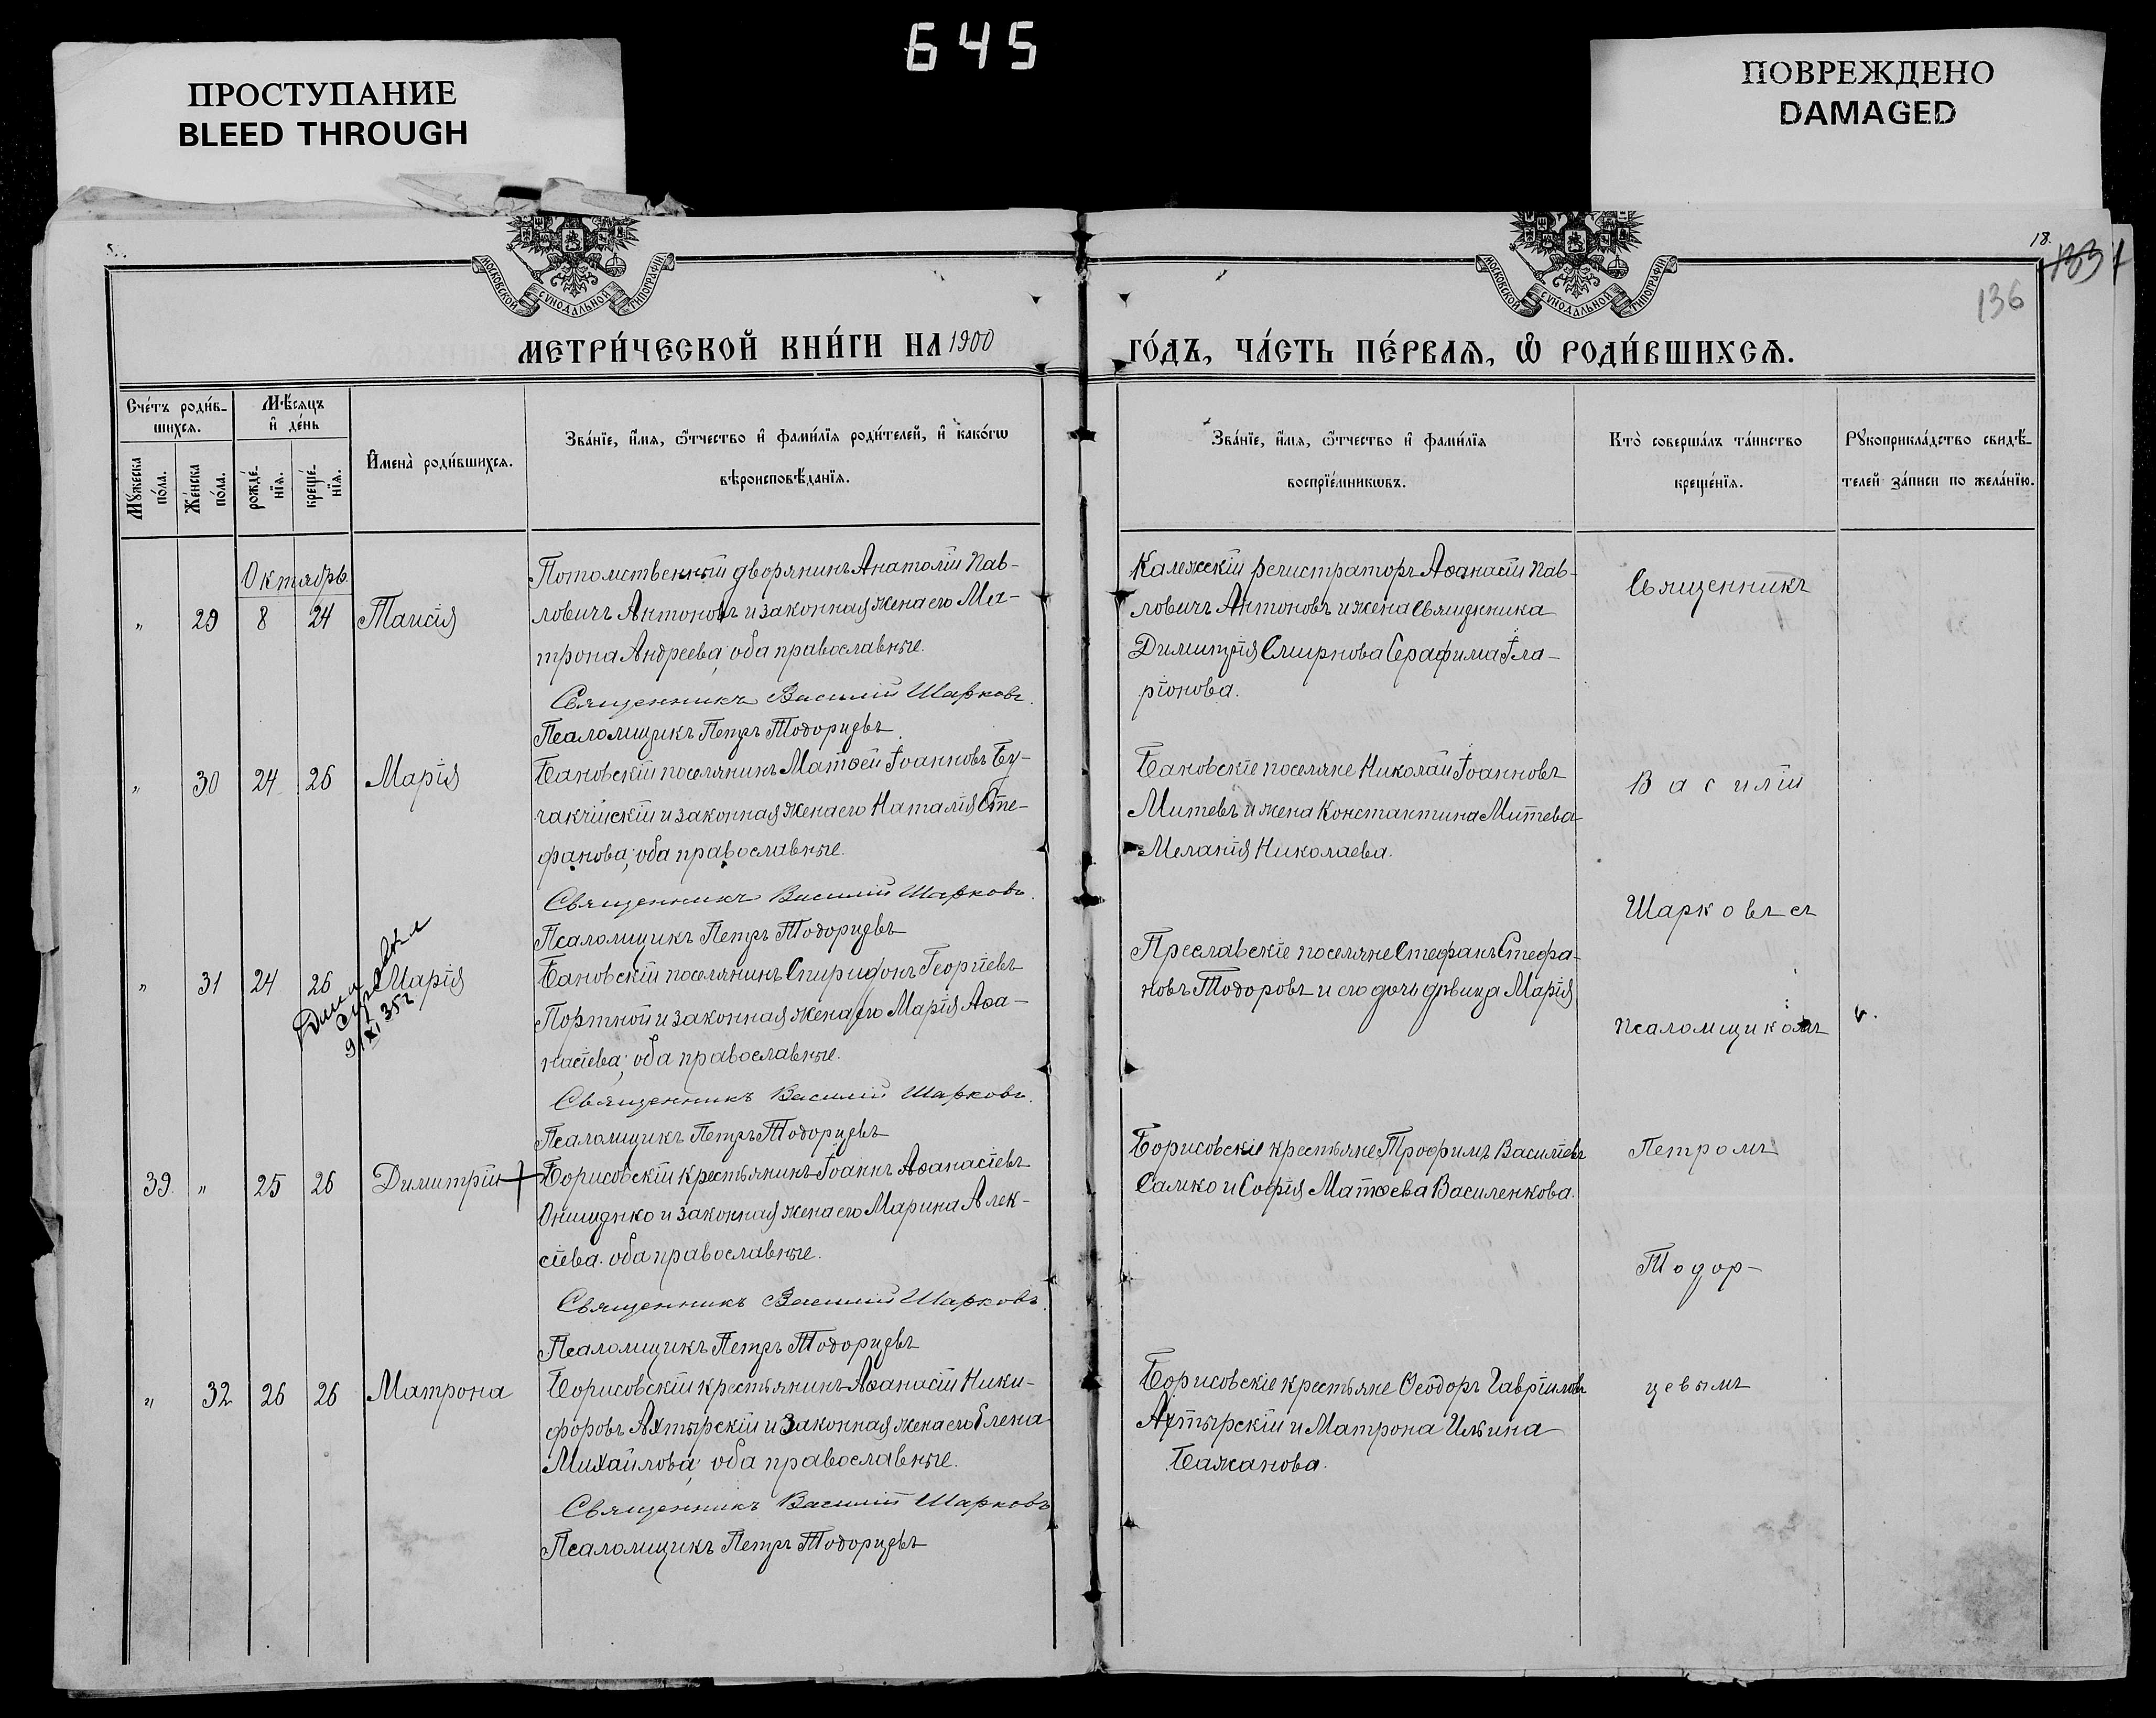 645
ПРОСТУПАНИЕ
BLEED THROUGH
ПОВРЕЖДЕНО
DAMAGED
МОСКОВСКОЙ СѴНОДАЛЬНОЙ ТИПОГРАФІИ
МОСКОВСКОЙ СѴНОДАЛЬНОЙ ТИПОГРАФІИ
18.
136
МЕТРИ́ЧЕСКОЙ КНИ́ГИ НА 1900
ГО́ДЪ, ЧА́СТЬ ПЕ́РВАѦ, Ѡ҆ РОДИ́ВШИХСѦ.
Сче́тъ роди́в-
шихсѧ.
Мꙋ́жеска по́ла.
Же́нска по́ла.
Мѣ́сѧцъ
и҆ де́нь
рожде́-
нїѧ.
креще́-
нїѧ.
И҆мена̀ роди́вшихсѧ.
Зва́нїе, и҆́мѧ, ѻ҆́тчество и҆ фами́лїѧ роди́телей, и҆ како́гѡ
вѣроисповѣ́данїѧ.
Зва́нїе, и҆́мѧ, ѻ҆́тчество и҆ фами́лїѧ
воспрїе́мникѡвъ.
Кто̀ соверша́лъ та́инство
креще́нїѧ.
Рꙋкоприкла́дство свидѣ́-
телей за́писи по жела́нїю.
Октябрь.
„ 29 8 24 Таисія
Потомственный дворянинъ Анатолій Пав-
ловичъ Антоновъ и законная жена его Ма-
трона Андреева, оба православные.
Священникъ Василій Шарковъ.
Псаломщикъ Петръ Тодорцевъ.
Калежскій регистраторъ Аѳанасій Пав-
ловичъ Антоновъ и жена священника
Димитрія Смирнова Серафима Іла-
ріонова.
„ 30 24 26 Марія
Бановскій поселянинъ Матѳей Іоанновъ Бу-
чакчійскій и законная жена его Наталія Сте-
фанова; оба православные.
Священникъ Василій Шарковъ.
Псаломщикъ Петръ Тодорцевъ
Бановскіе поселяне Николай Іоанновъ
Митевъ и жена Константина Митева
Меланія Николаева.
„ 31 24 26 Марія
9/XI 35 г
Бановскій поселянинъ Спиридонъ Георгіевъ
Портной и законная жена его Марія Аѳа-
насіева; оба православные.
Священникъ Василій Шарковъ.
Псаломщикъ Петръ Тодорцевъ
Преславскіе поселяне Стефанъ Стефа-
новъ Тодоровъ и его дочь дѣвица Марія
39. „ 25 26 Димитрій
Борисовскій крестьянинъ Іоаннъ Аѳанасіевъ
Онищенко и законная жена его Марина Алек-
сіева. оба православные.
Священникъ Василій Шарковъ.
Псаломщикъ Петръ Тодорцевъ
Борисовскіе крестьяне Трофимъ Василіевъ
Самко и Софія Матѳеева Василенкова.
„ 32 26 26 Матрона
Борисовскій крестьянинъ Аѳанасій Ники-
форовъ Ахтырскій и законная жена его Елена
Михайлова; оба православные.
Священникъ Василій Шарковъ
Псаломщикъ Петръ Тодорцевъ
Борисовскіе крестьяне Ѳеодоръ Гавріиловъ
Ахтырскій и Матрона Ильина
Бажанова.
Священникъ
Василій
Шарковъ съ
псаломщикомъ
Петромъ
Тодор-
цевымъ